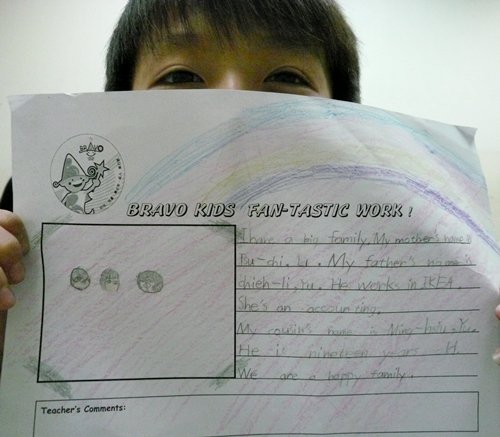 BRAVO
BRAVO KIDS FAN-TASTIC WORK!
I have a big family. My mother's name is
My father's name is
chieh-li, Yu. He works in IKEA.
She's an accounting.
My cousin's name is Ming-hsiu, Yu.
He is nineteen years
We are a happy family.
Teacher's Comments: